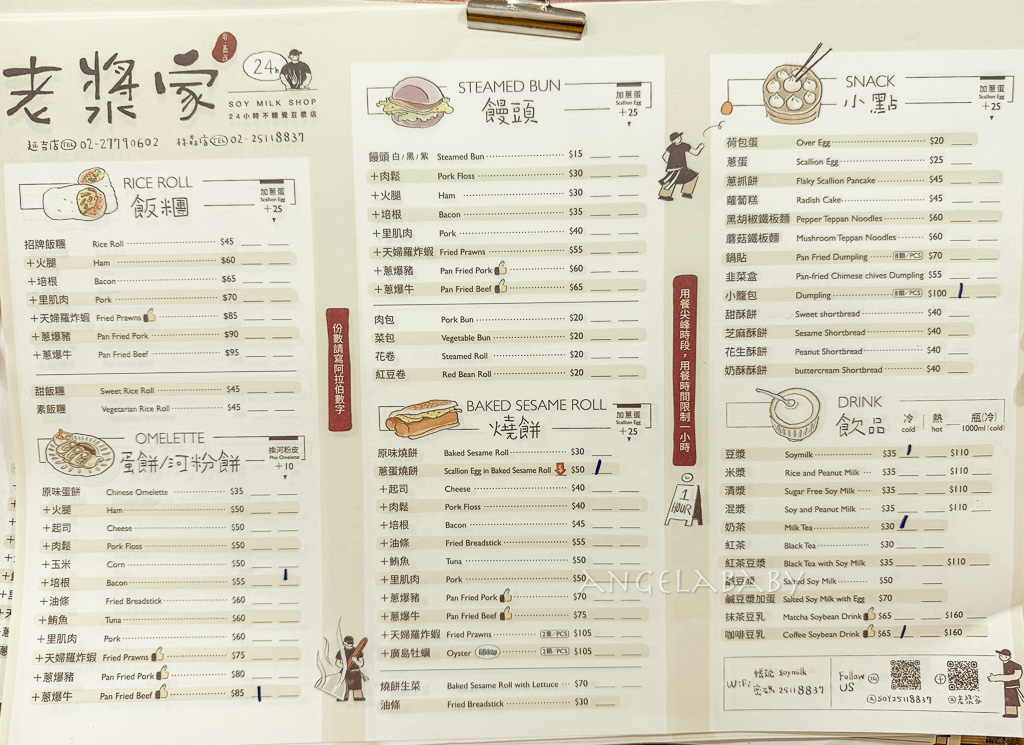 老漿家
24h
SOY MILK SHOP
24小時不睡覺豆漿店
延吉店 TEL 02-27790602 林森店 TEL 02-25118837
RICE ROLL
飯糰
加蔥蛋
Scallion Egg
+25
招牌飯糰 Rice Roll $45
+火腿 Ham $60
+培根 Bacon $65
+里肌肉 Pork $70
+天婦羅炸蝦 Fried Prawns $85
+蔥爆豬 Pan Fried Pork $90
+蔥爆牛 Pan Fried Beef $95
甜飯糰 Sweet Rice Roll $45
素飯糰 Vegetarian Rice Roll $45
OMELETTE
蛋餅/河粉餅
換河粉皮
Pho Omelette
+10
原味蛋餅 Chinese Omelette $35
+火腿 Ham $50
+起司 Cheese $50
+肉鬆 Pork Floss $50
+玉米 Corn $50
+培根 Bacon $55
+油條 Fried Breadstick $60
+鮪魚 Tuna $60
+里肌肉 Pork $60
+天婦羅炸蝦 Fried Prawns $75
+蔥爆豬 Pan Fried Pork $80
+蔥爆牛 Pan Fried Beef $85
份數請寫阿拉伯數字
STEAMED BUN
饅頭
加蔥蛋
Scallion Egg
+25
饅頭 白/黑/紫 Steamed Bun $15
+肉鬆 Pork Floss $30
+火腿 Ham $30
+培根 Bacon $35
+里肌肉 Pork $40
+天婦羅炸蝦 Fried Prawns $55
+蔥爆豬 Pan Fried Pork $60
+蔥爆牛 Pan Fried Beef $65
肉包 Pork Bun $20
菜包 Vegetable Bun $20
花卷 Steamed Roll $20
紅豆卷 Red Bean Roll $20
BAKED SESAME ROLL
燒餅
加蔥蛋
Scallion Egg
+25
原味燒餅 Baked Sesame Roll $30
蔥蛋燒餅 Scallion Egg in Baked Sesame Roll $50
+起司 Cheese $40
+肉鬆 Pork Floss $40
+培根 Bacon $45
+油條 Fried Breadstick $55
+鮪魚 Tuna $50
+里肌肉 Pork $50
+蔥爆豬 Pan Fried Pork $70
+蔥爆牛 Pan Fried Beef $75
+天婦羅炸蝦 Fried Prawns 2隻/PCS $105
+廣島牡蠣 Oyster 2顆/PCS $105
燒餅生菜 Baked Sesame Roll with Lettuce $70
油條 Fried Breadstick $30
用餐尖峰時段,用餐時間限制一小時
1 HOUR
SNACK
小點
加蔥蛋
Scallion Egg
+25
荷包蛋 Over Egg $20
蔥蛋 Scallion Egg $25
蔥抓餅 Flaky Scallion Pancake $45
蘿蔔糕 Radish Cake $45
黑胡椒鐵板麵 Pepper Teppan Noodles $60
蘑菇鐵板麵 Mushroom Teppan Noodles $60
鍋貼 Pan Fried Dumpling 8顆/PCS $70
韭菜盒 Pan-fried Chinese chives Dumpling $55
小籠包 Dumpling 8顆/PCS $100
甜酥餅 Sweet shortbread $40
芝麻酥餅 Sesame Shortbread $40
花生酥餅 Peanut Shortbread $40
奶酥酥餅 buttercream Shortbread $40
DRINK
飲品
冷 cold 熱 hot 瓶(冷) 1000ml (cold)
豆漿 Soymilk $35 $110
米漿 Rice and Peanut Milk $35 $110
清漿 Sugar Free Soy Milk $35 $110
混漿 Soy and Peanut Milk $35 $110
奶茶 Milk Tea $30
紅茶 Black Tea $30
紅茶豆漿 Black Tea with Soy Milk $35 $110
鹹豆漿 Salted Soy Milk $50
鹹豆漿加蛋 Salted Soy Milk with Egg $70
抹茶豆乳 Matcha Soybean Drink $65 $160
咖啡豆乳 Coffee Soybean Drink $65 $160
WiFi 帳號 soymilk
密碼 25118837
Follow US
SOY25118837
老漿家
ANGELABABY